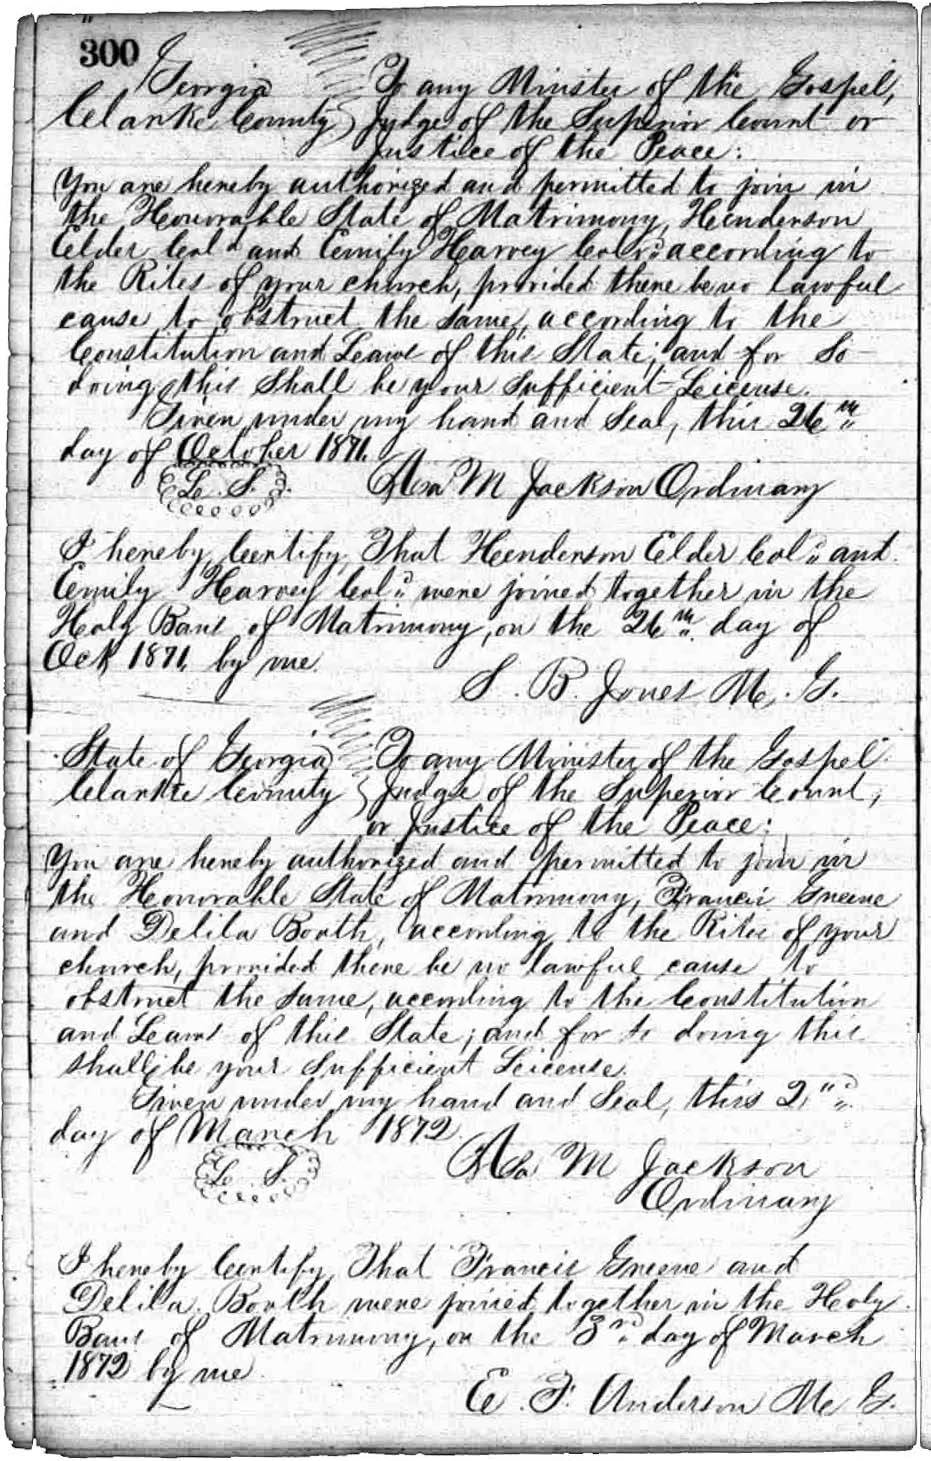 300
Georgia } To any Minister of the Gospel,
Clarke County } Judge of the Superior Court or
Justice of the Peace:
You are hereby authorized and permitted to join in
the Honorable State of Matrimony, Henderson
Elder Col'd and Emily Harvey Col'd according to
the Rites of your church, provided there be no lawful
cause to obstruct the same, according to the
Constitution and Laws of this State; and for so
doing this shall be your sufficient License.
Given under my hand and Seal, this 26th
day of October 1871.
L. S. Asa M Jackson Ordinary
I hereby Certify, That Henderson Elder Col'd and
Emily Harvey Col'd were joined together in the
Holy Bans of Matrimony, on the 26th day of
Oct 1871, by me.
S. B. Jones M. G.
State of Georgia } To any Minister of the Gospel
Clarke County } Judge of the Superior Court,
or Justice of the Peace:
You are hereby authorized and permitted to join in
the Honorable State of Matrimony, Francis Greene
and Delila Booth, according to the Rites of your
church, provided there be no lawful cause to
obstruct the same, according to the Constitution
and Laws of this State; and for so doing this
shall be your sufficient License.
Given under my hand and Seal, this 2nd
day of March 1872.
L. S. Asa M Jackson
Ordinary
I hereby Certify, That Francis Greene and
Delila Booth were joined together in the Holy
Bans of Matrimony, on the 3rd day of March
1872 by me
E. F. Anderson M G.